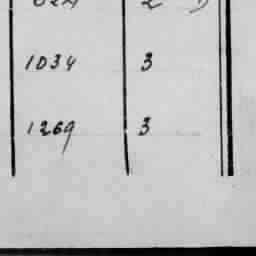 1034 3
1269 3